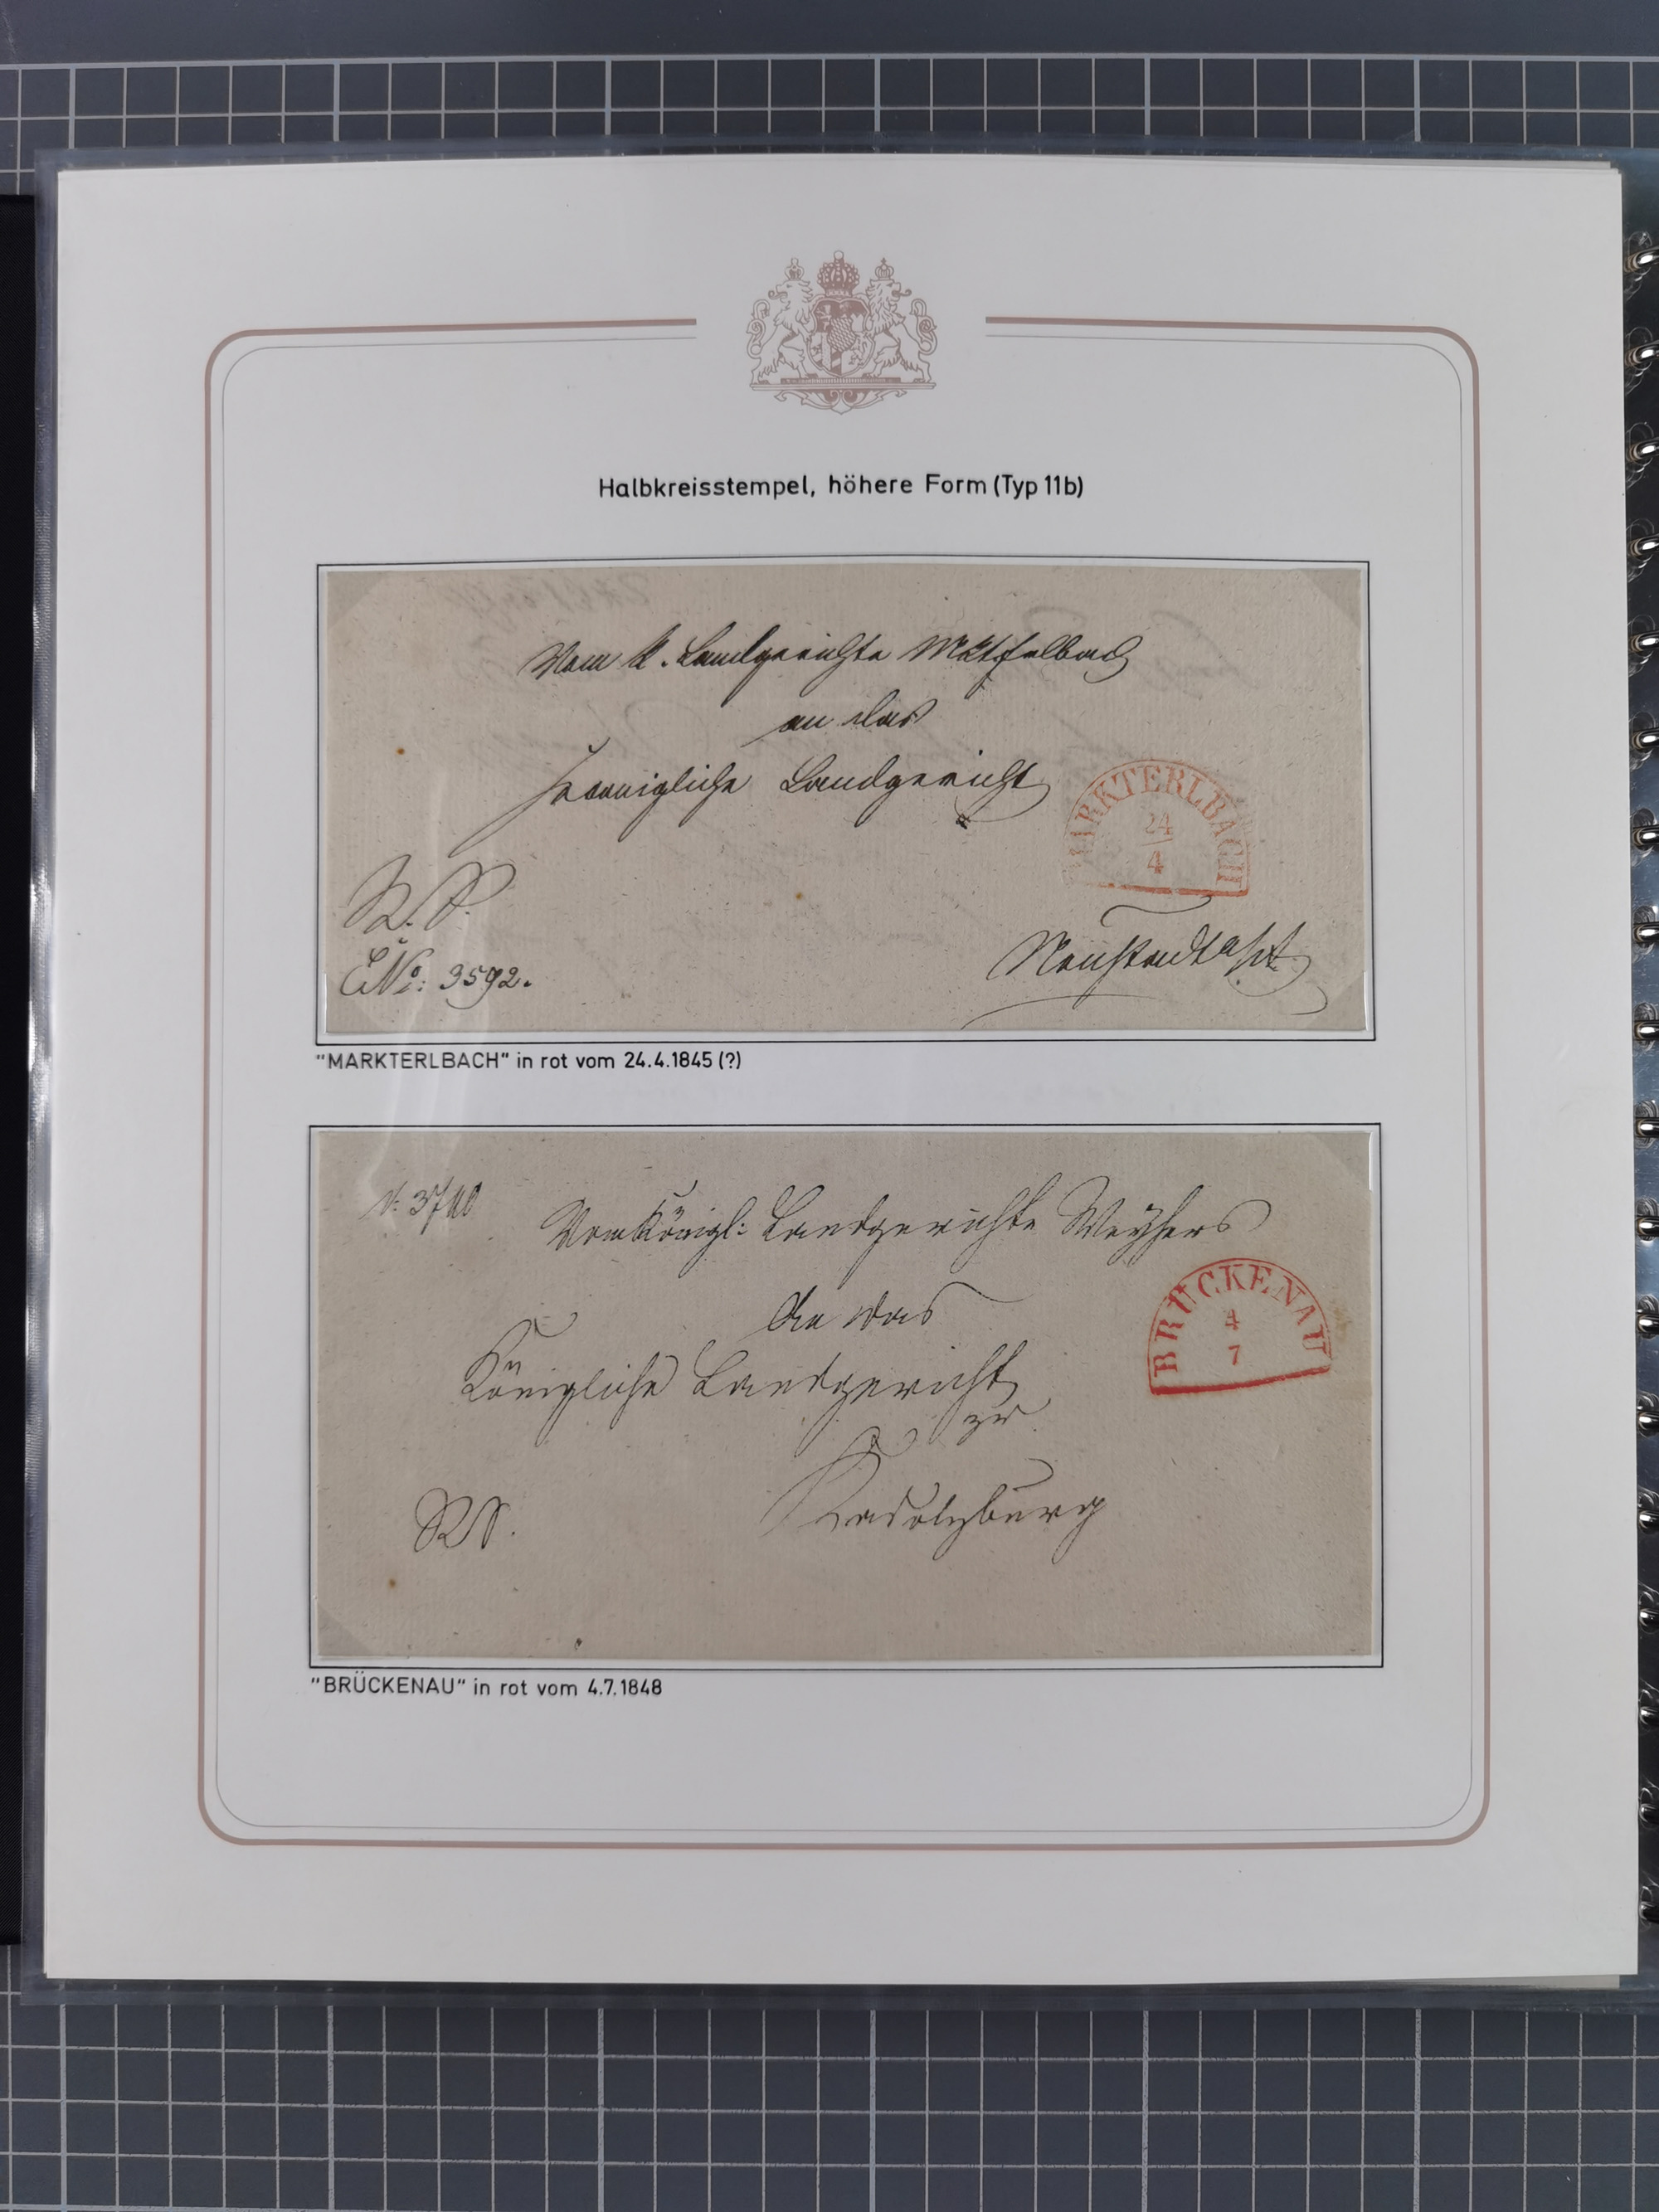 Halbkreisstempel, höhere Form (Typ 11b)
Vom k. Landgerichte Mktherlbach
an das
koenigliche Landgericht
MARKTERLBACH
24
4
R. S.
E No: 3592.
Neustadt a/A
"MARKTERLBACH" in rot vom 24.4.1845 (?)
Vom Königl: Landgerichte Weyhers
An das
Königliche Landgericht
zu
Kadolzburg
BRÜCKENAU
4
7
R.S.
"BRÜCKENAU" in rot vom 4.7.1848